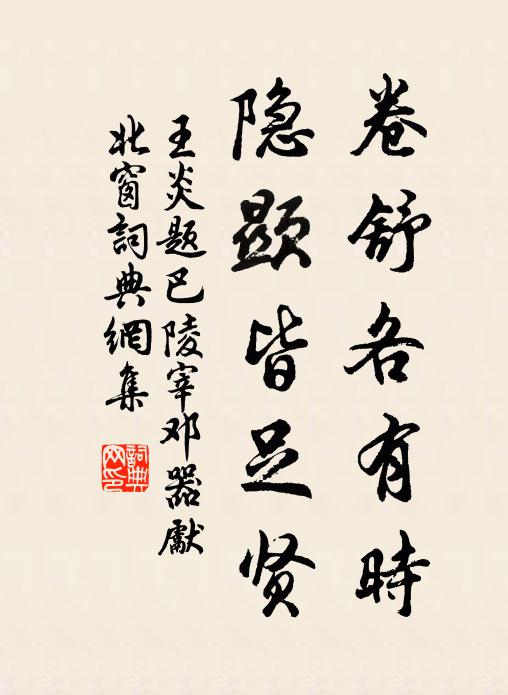 卷舒各有時
隐顯皆足贤
王炎题巴陵宰邓器獻
北窗詞典網集
詞典网印